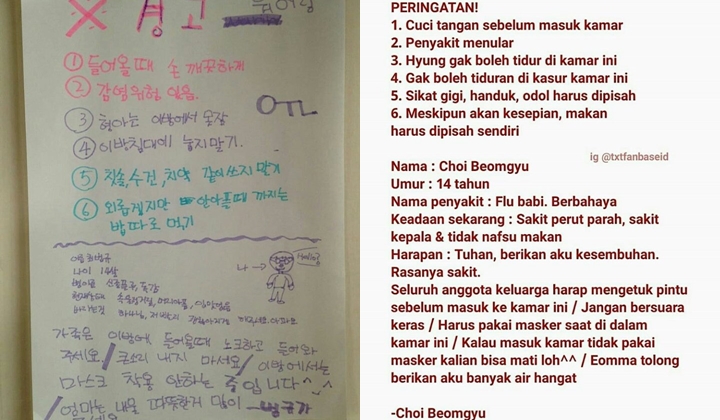 ※ 경고
① 들어올때 손 깨끗하게
② 감염위험 있음.
OTL
③ 형아는 이방에서 못잠
④ 이방침대에 눕지말기.
⑤ 칫솔, 수건, 치약 같이쓰지 말기
⑥ 외롭겠지만 안아플때 까지는
밥따로 먹기
나이 14살
나 →
가족은 이방에 들어올때 노크하고 들어와
주세요 / 큰소리 내지 마세요 / 이방에서는
마스크 착용 안하는 죽입니다^_^
/ 엄마는 내물 따뜻한거 많이
PERINGATAN!
1. Cuci tangan sebelum masuk kamar
2. Penyakit menular
3. Hyung gak boleh tidur di kamar ini
4. Gak boleh tiduran di kasur kamar ini
5. Sikat gigi, handuk, odol harus dipisah
6. Meskipun akan kesepian, makan
harus dipisah sendiri
ig @txtfanbaseid
Nama : Choi Beomgyu
Umur : 14 tahun
Nama penyakit : Flu babi. Berbahaya
Keadaan sekarang : Sakit perut parah, sakit
kepala & tidak nafsu makan
Harapan : Tuhan, berikan aku kesembuhan.
Rasanya sakit.
Seluruh anggota keluarga harap mengetuk pintu
sebelum masuk ke kamar ini / Jangan bersuara
keras / Harus pakai masker saat di dalam
kamar ini / Kalau masuk kamar tidak pakai
masker kalian bisa mati loh^^ / Eomma tolong
berikan aku banyak air hangat
-Choi Beomgyu